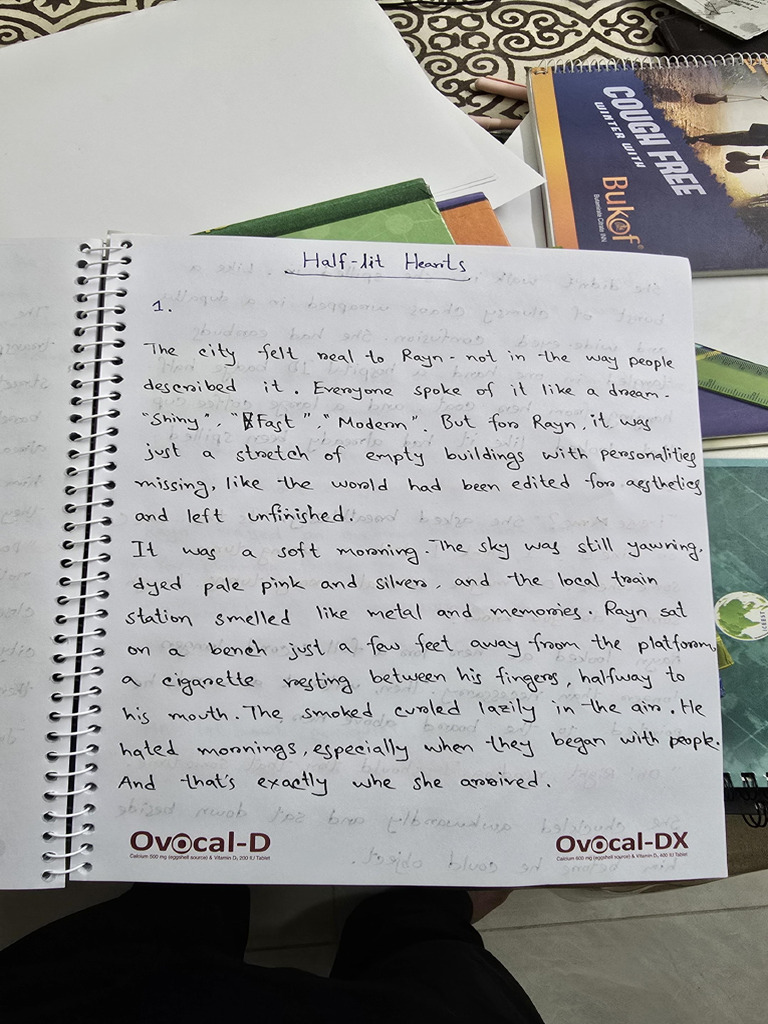 COUGH FREE
WINTER WITH
Bukof
Butamirate Citrate INN
Half-lit Hearts
1.
The city felt real to Rayn - not in the way people
described it. Everyone spoke of it like a dream.
"Shiny", "Fast", "Modern". But for Rayn, it was
just a stretch of empty buildings with personalities
missing, like the world had been edited for aesthetics
and left unfinished.
It was a soft morning. The sky was still yawning,
dyed pale pink and silver, and the local train
station smelled like metal and memories. Rayn sat
on a bench just a few feet away from the platform,
a cigarette resting between his fingers, halfway to
his mouth. The smoked curled lazily in the air. He
hated mornings, especially when they began with people.
And that's exactly whe she arrived.
Ovocal-D
Calcium 500 mg (eggshell source) & Vitamin D₃ 200 IU Tablet
Ovocal-DX
Calcium 600 mg (eggshell source) & Vitamin D₃ 400 IU Tablet